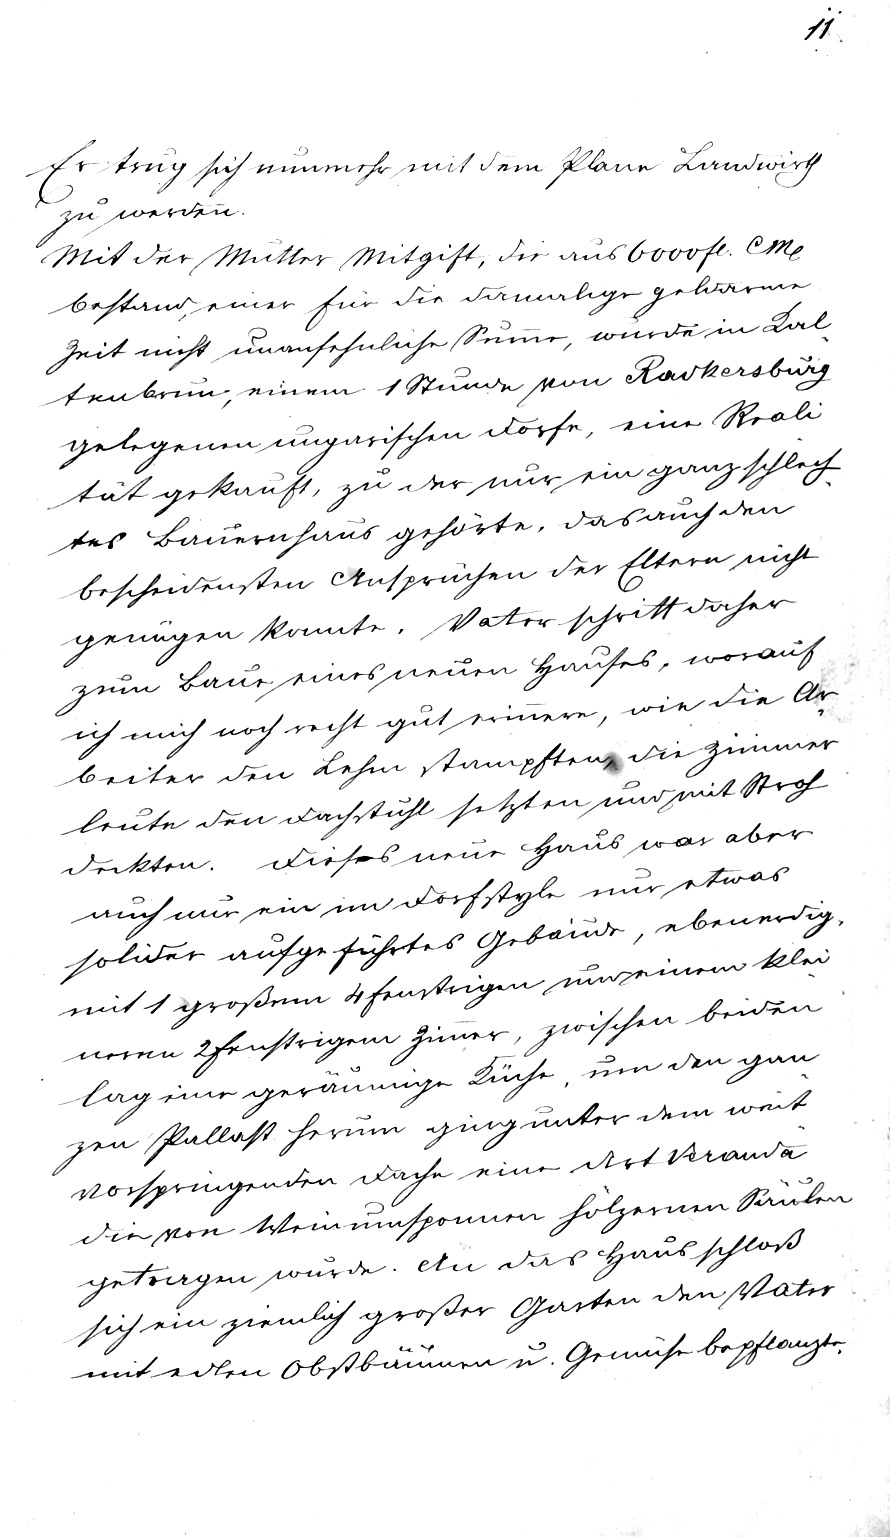 11.
Er trug sich nunmehr mit dem Plane Landwirth
zu werden.
Mit der Mutter Mitgift, die aus 6000 fl. CM
bestand, einer für die damalige geldarme
Zeit nicht unansehnliche Sume, wurde in Kal-
tenbrun, einem 1 Stunde von Radkersburg
gelegenen ungarischen Dorfe, eine Reali
tät gekauft, zu der nur ein ganz schlech-
tes Bauernhaus gehörte, das auch den
bescheidensten Ansprüchen der Eltern nicht
genügen konnte. Vater schritt daher
zum Baue eines neuen Hauses, worauf
ich mich noch recht gut erinere, wie die Ar-
beiter den Lehm stampften, die Zimmer
leute den Dachstuhl setzten und mit Stroh
deckten. Dieses neue Haus war aber
auch nur ein im Dorfstyle nur etwas
solider aufgeführtes Gebäude, ebenerdig,
mit 1 großem 4 fenstrigen und einem klei-
neren 2 fenstrigem Zimer, zwischen beiden
lag eine geräumige Küche, um den gan-
zen Pallast herum ging unter dem weit
vorspringenden Dache eine Art Veranda
die von Wein umsponnen hölzernen Säulen
getragen wurde. An das Haus schloß
sich ein ziemlich großer Garten den Vater
mit edlen Obstbäumen u. Gemüse bepflanzte.